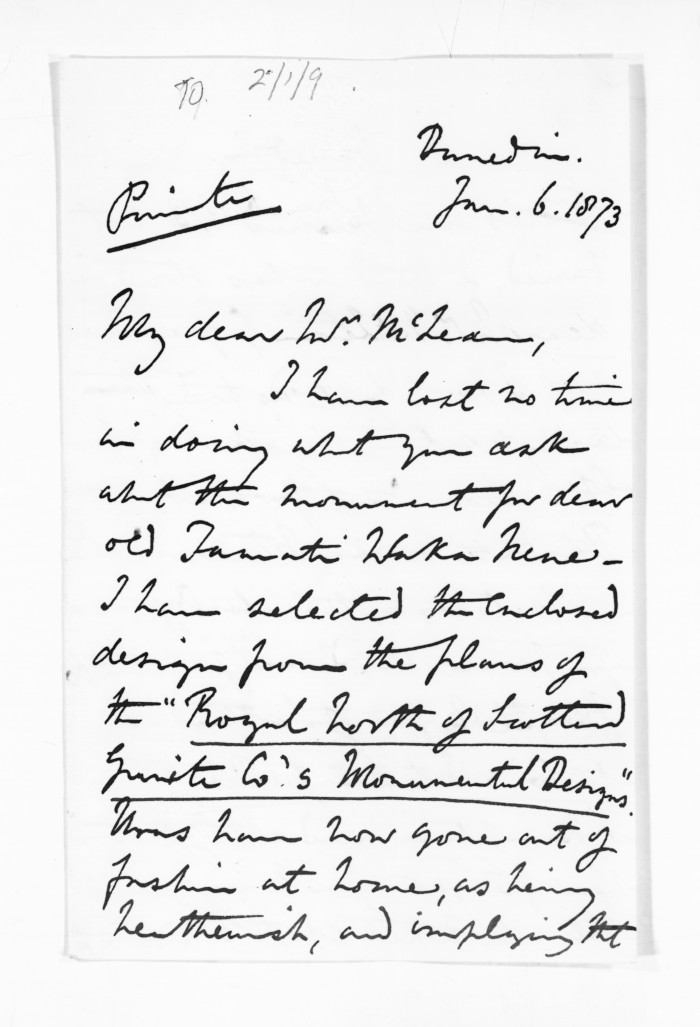 TO 2/1/9
Dunedin.
Jan. 6. 1873
Private
My dear Mr. McLean,
I have lost no time
in doing what you ask
abt the monument for dear
old Tamati Waka Nene –
I have selected the enclosed
design from the plans of
the "Royal North of Scotland
Granite Co's Monumental Designs".
Urns have now gone out of
fashion at home, as being
heathenish, and implying tht